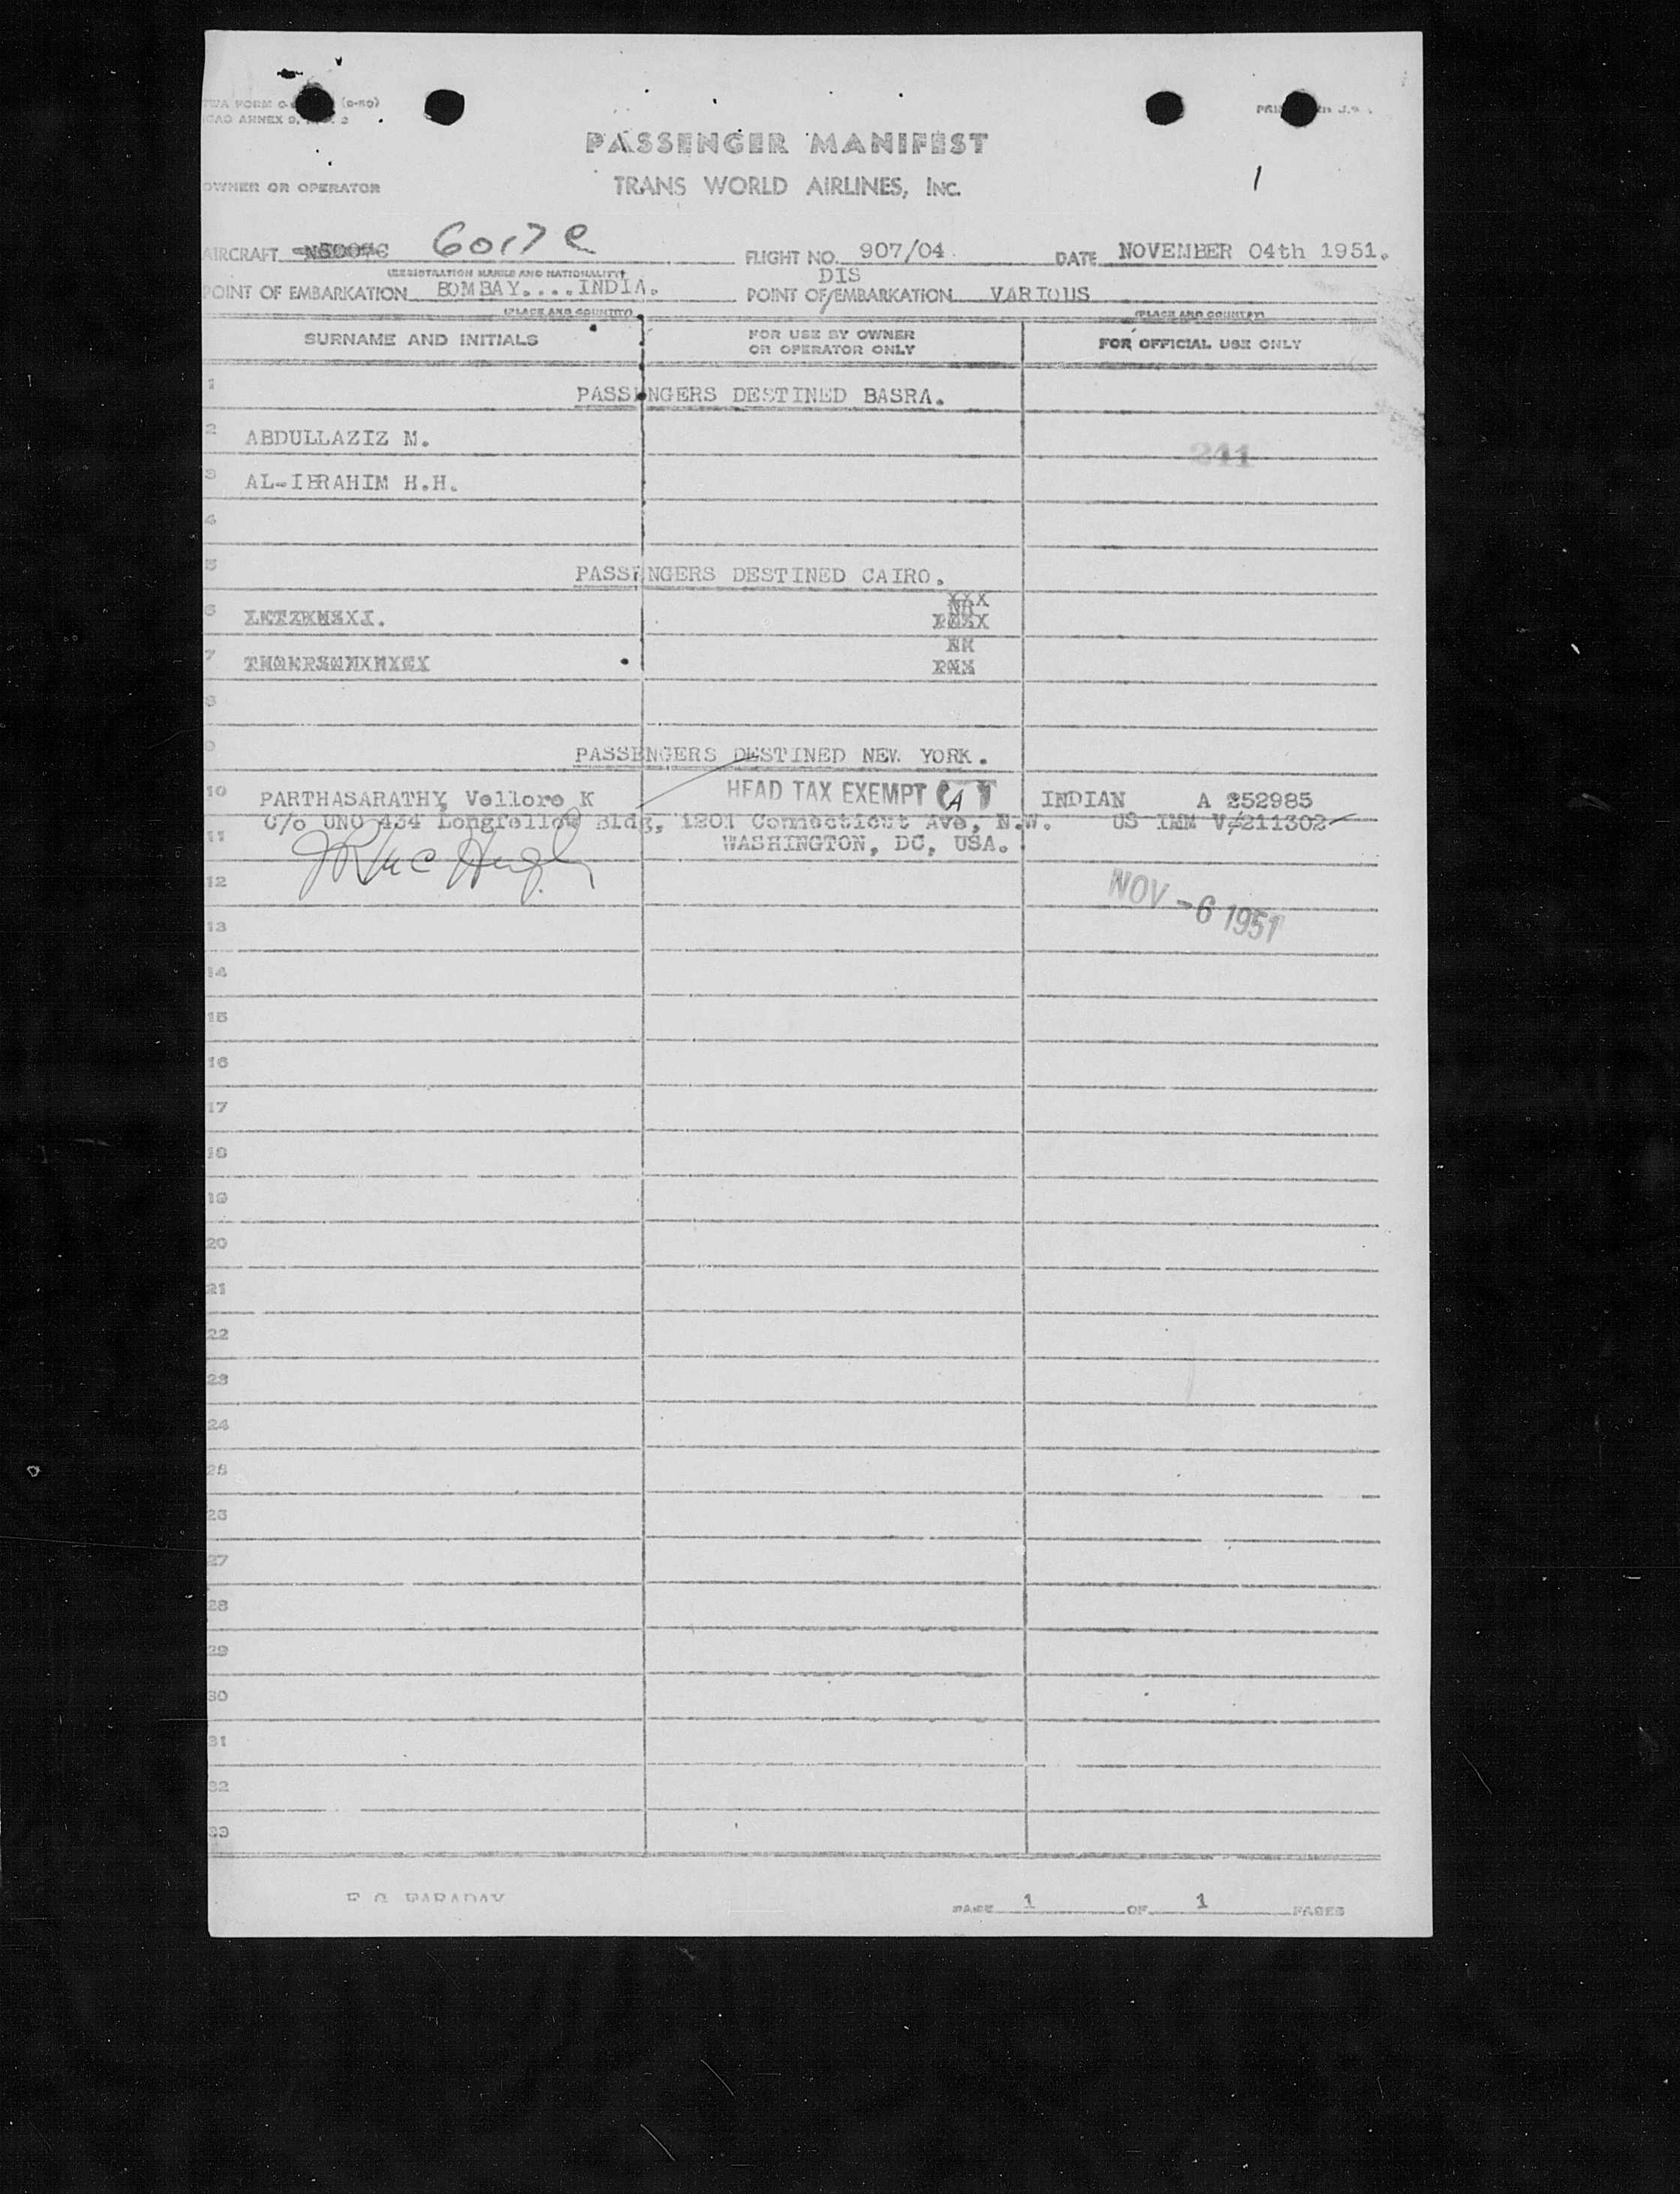 PASSENGER MANIFEST
OWNER OR OPERATOR TRANS WORLD AIRLINES, INC. 1
AIRCRAFT 6017C FLIGHT NO. 907/04 DATE NOVEMBER 04th 1951.
(REGISTRATION MARKS AND NATIONALITY) DIS
POINT OF EMBARKATION BOMBAY....INDIA. POINT OF/EMBARKATION VARIOUS
(PLACE AND COUNTRY) (PLACE AND COUNTRY)
SURNAME AND INITIALS FOR USE BY OWNER OR OPERATOR ONLY FOR OFFICIAL USE ONLY
1 PASSENGERS DESTINED BASRA.
2 ABDULLAZIZ M. 241
3 AL-IBRAHIM H.H.
4
5 PASSENGERS DESTINED CAIRO.
6
7
8
9 PASSENGERS DESTINED NEW YORK.
10 PARTHASARATHY, Vellore K HEAD TAX EXEMPT A INDIAN A 252985
C/o UNO 434 Longfellow Bldg, 1201 Connecticut Ave, N.W. US IMM V/211302
11 WASHINGTON, DC, USA.
12 NOV -6 1951
13
14
15
16
17
18
19
20
21
22
23
24
25
26
27
28
29
30
31
32
33
F G FARADAY PAGE 1 OF 1 PAGES